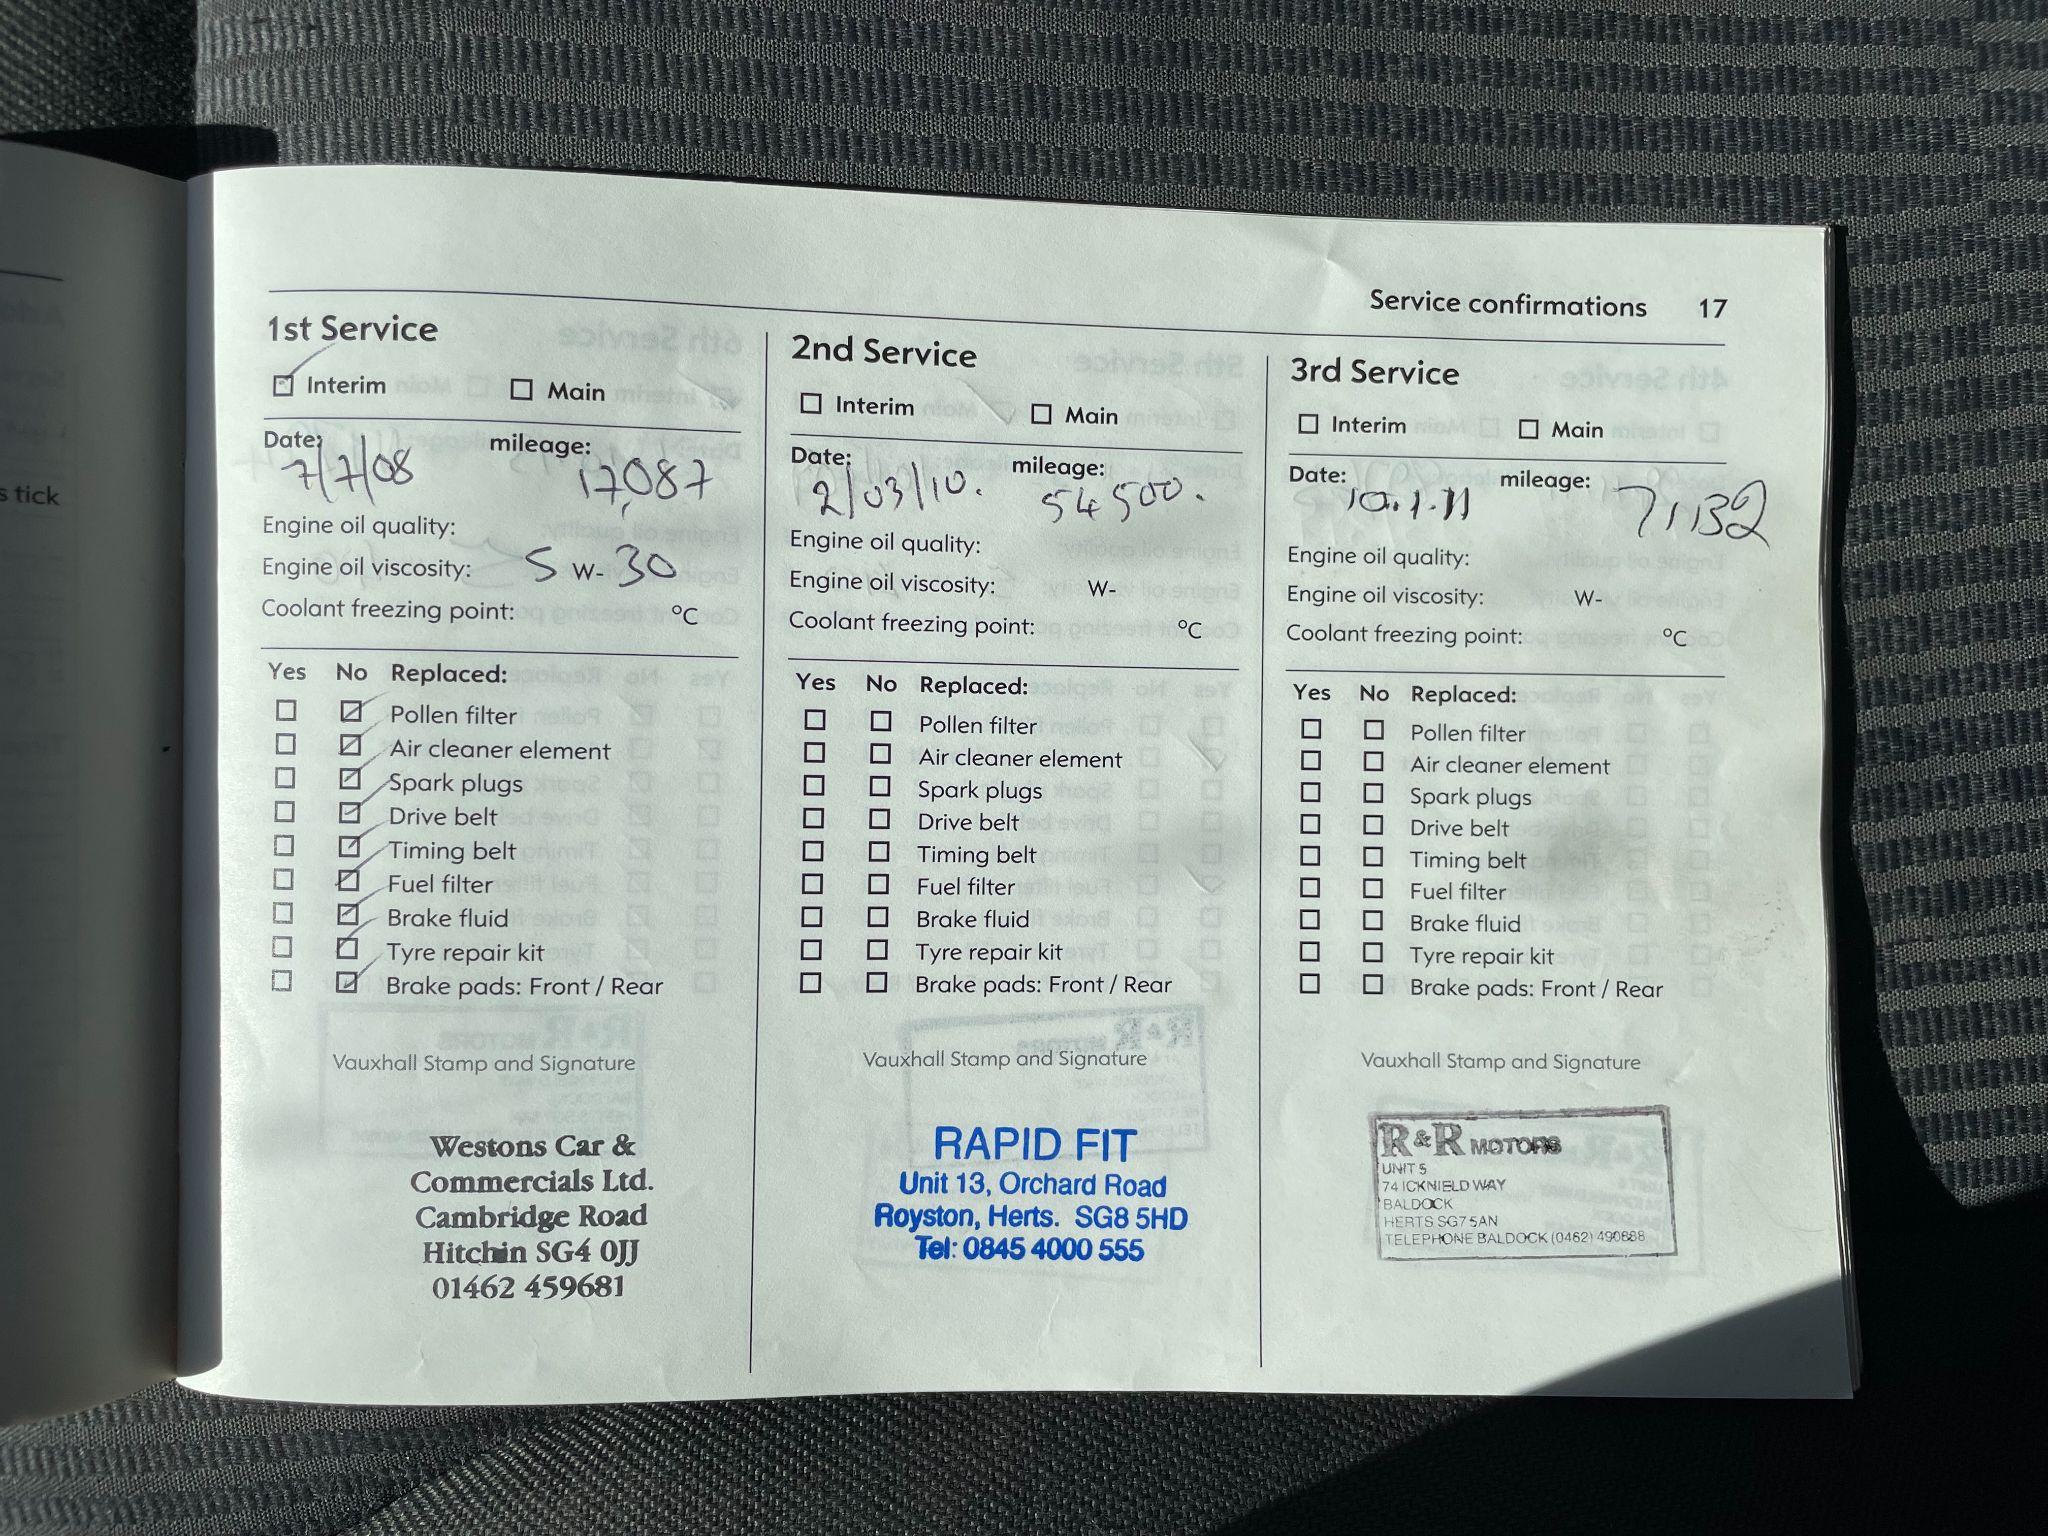 s tick
Service confirmations 17
1st Service
Interim Main
Date: 7/7/08 mileage: 17,087
Engine oil quality:
Engine oil viscosity: 5 W- 30
Coolant freezing point: °C
Yes No Replaced:
Pollen filter
Air cleaner element
Spark plugs
Drive belt
Timing belt
Fuel filter
Brake fluid
Tyre repair kit
Brake pads: Front / Rear
Vauxhall Stamp and Signature
Westons Car &
Commercials Ltd.
Cambridge Road
Hitchin SG4 0JJ
01462 459681
2nd Service
Interim Main
Date: 2/03/10. mileage: 54500.
Engine oil quality:
Engine oil viscosity: W-
Coolant freezing point: °C
Yes No Replaced:
Pollen filter
Air cleaner element
Spark plugs
Drive belt
Timing belt
Fuel filter
Brake fluid
Tyre repair kit
Brake pads: Front / Rear
Vauxhall Stamp and Signature
RAPID FIT
Unit 13, Orchard Road
Royston, Herts. SG8 5HD
Tel: 0845 4000 555
3rd Service
Interim Main
Date: 10.1.11 mileage: 71132
Engine oil quality:
Engine oil viscosity: W-
Coolant freezing point: °C
Yes No Replaced:
Pollen filter
Air cleaner element
Spark plugs
Drive belt
Timing belt
Fuel filter
Brake fluid
Tyre repair kit
Brake pads: Front / Rear
Vauxhall Stamp and Signature
R&R MOTORS
UNIT 5
74 ICKNIELD WAY
BALDOCK
HERTS SG7 5AN
TELEPHONE BALDOCK (0462) 490888